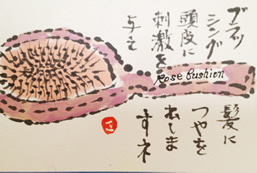 ブラッ
シング
頭皮に
刺激を
与え
Rose Cushion
髪に
つやを
だしま
すネ